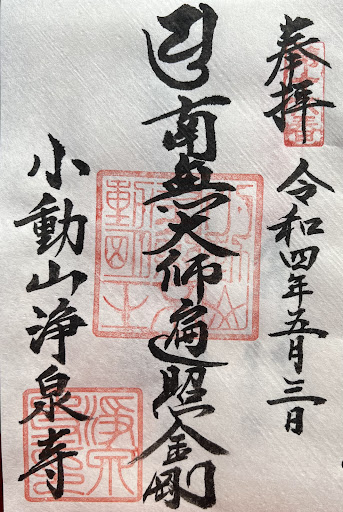 奉拝
令和四年五月三日
南無大師遍照金剛
小動山浄泉寺